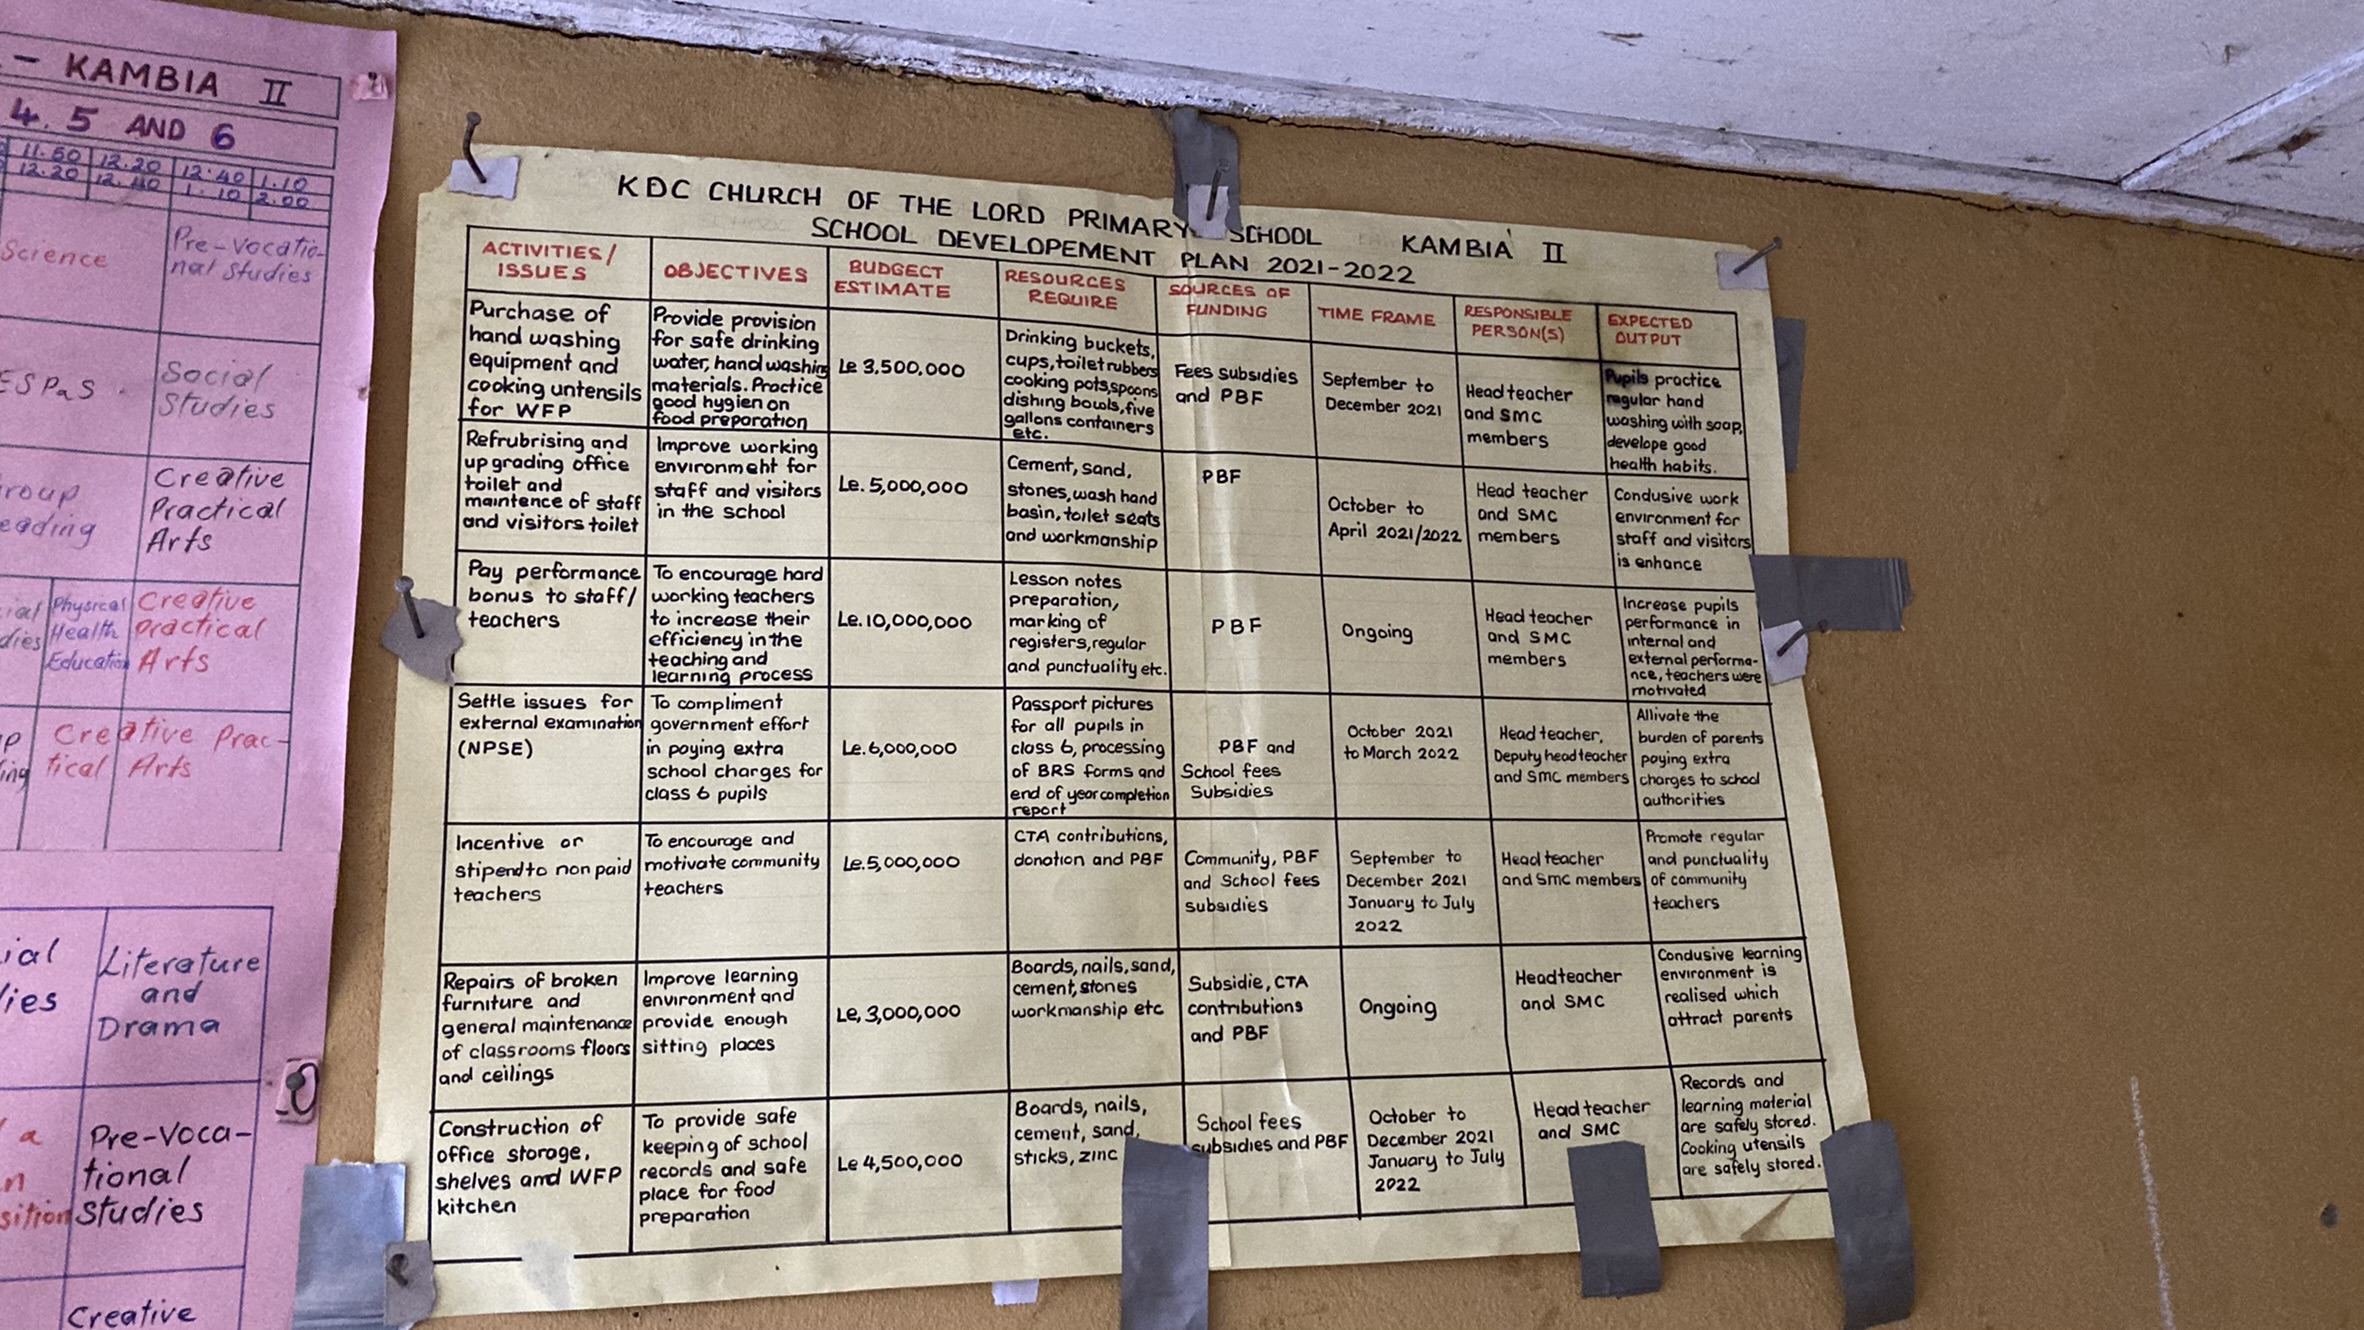 - KAMBIA II
4. 5 AND 6
11.50 12.20 12.40 1.10
12.20 12.40 1.10 2.00
Science
Pre-Vocatio-
nal Studies
ESPaS.
Social
Studies
Creative
Practical
Arts
Physical
Health
Education
Creative
Practical
Arts
Creative Prac-
tical Arts
Literature
and
Drama
Pre-Voca-
tional
Studies
Creative
KDC CHURCH OF THE LORD PRIMARY SCHOOL KAMBIA II
SCHOOL DEVELOPEMENT PLAN 2021-2022
ACTIVITIES/
ISSUES
OBJECTIVES
BUDGECT
ESTIMATE
RESOURCES
REQUIRE
SOURCES OF
FUNDING
TIME FRAME
RESPONSIBLE
PERSON(S)
EXPECTED
OUTPUT
Purchase of
hand washing
equipment and
cooking untensils
for WFP
Provide provision
for safe drinking
water, hand washing
materials. Practice
good hygien on
food preparation
Le 3,500,000
Drinking buckets,
cups, toilet rubbers
cooking pots,spoons
dishing bowls, five
gallons containers
etc.
Fees subsidies
and PBF
September to
December 2021
Head teacher
and SMC
members
Pupils practice
regular hand
washing with soap,
develope good
health habits.
Refrubrising and
up grading office
toilet and
maintence of staff
and visitors toilet
Improve working
environment for
staff and visitors
in the school
Le. 5,000,000
Cement, sand,
stones, wash hand
basin, toilet seats
and workmanship
PBF
October to
April 2021/2022
Head teacher
and SMC
members
Condusive work
environment for
staff and visitors
is enhance
Pay performance
bonus to staff/
teachers
To encourage hard
working teachers
to increase their
efficiency in the
teaching and
learning process
Le. 10,000,000
Lesson notes
preparation,
marking of
registers, regular
and punctuality etc.
PBF
Ongoing
Head teacher
and SMC
members
Increase pupils
performance in
internal and
external performa-
nce, teachers were
motivated
Settle issues for
external examination
(NPSE)
To compliment
government effort
in paying extra
school charges for
class 6 pupils
Le. 6,000,000
Passport pictures
for all pupils in
class 6, processing
of BRS forms and
end of year completion
report
PBF and
School fees
Subsidies
October 2021
to March 2022
Head teacher,
Deputy head teacher
and SMC members
Allivate the
burden of parents
paying extra
charges to school
authorities
Incentive or
stipend to non paid
teachers
To encourage and
motivate community
teachers
Le. 5,000,000
CTA contributions,
donotion and PBF
Community, PBF
and School fees
subsidies
September to
December 2021
January to July
2022
Head teacher
and SMC members
Promote regular
and punctuality
of community
teachers
Repairs of broken
furniture and
general maintenance
of classrooms floors
and ceilings
Improve learning
environment and
provide enough
sitting places
Le, 3,000,000
Boards, nails, sand,
cement, stones
workmanship etc
Subsidie, CTA
contributions
and PBF
Ongoing
Head teacher
and SMC
Condusive learning
environment is
realised which
attract parents
Construction of
office storage,
shelves and WFP
kitchen
To provide safe
keeping of school
records and safe
place for food
preparation
Le 4,500,000
Boards, nails,
cement, sand,
sticks, zinc
School fees
subsidies and PBF
October to
December 2021
January to July
2022
Head teacher
and SMC
Records and
learning material
are safely stored.
Cooking utensils
are safely stored.